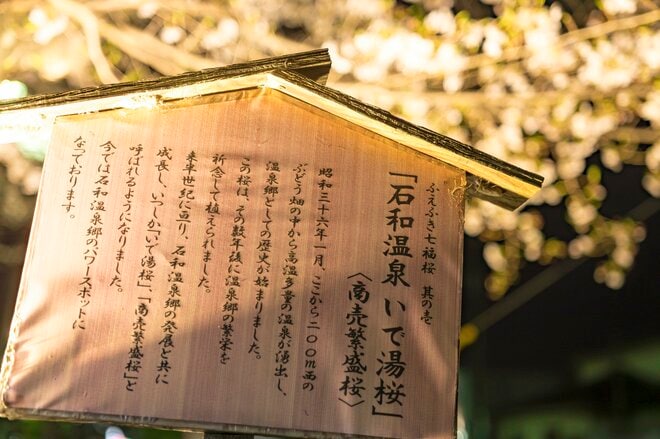 ふえふき七福桜　其の壱
「石和温泉 いで湯桜」
〈商売繁盛桜〉
昭和三十六年一月、ここから二〇〇m西の
ぶどう畑の中から高温多量の温泉が湧出し、
温泉郷としての歴史が始まりました。
この桜は、その数年後に温泉郷の繁栄を
祈念して植えられました。
来半世紀に亘り、石和温泉郷の発展と共に
成長し、いつしか「いで湯桜」、「商売繁盛桜」と
呼ばれるようになりました。
今では石和温泉郷のパワースポットに
なっております。